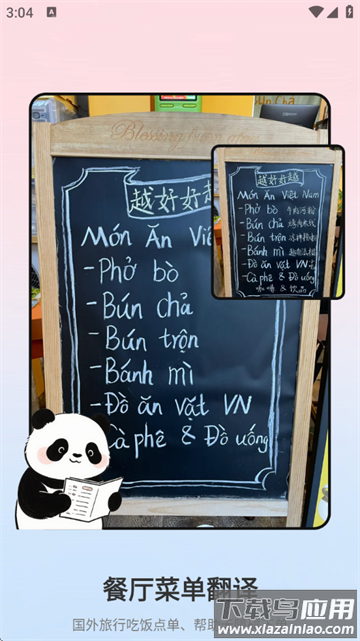 3:04
A
Blessing
越好好越
Món Ăn Việ
-Phở bò
-Bún chả
-Bún trộn
-Bánh mì
-Đồ ăn vặt VN
Cà phê & Đồ uống
越好好越
Món Ăn Việt Nam
-Phở bò 牛肉河粉
-Bún chả
-Bún trộn
-Bánh mì
-Đồ ăn vặt VN
-Cà phê & Đồ uống
咖啡 & 饮品
餐厅菜单翻译
国外旅行吃饭点单、帮助
下载鸟应用
www.xiazainiao.com